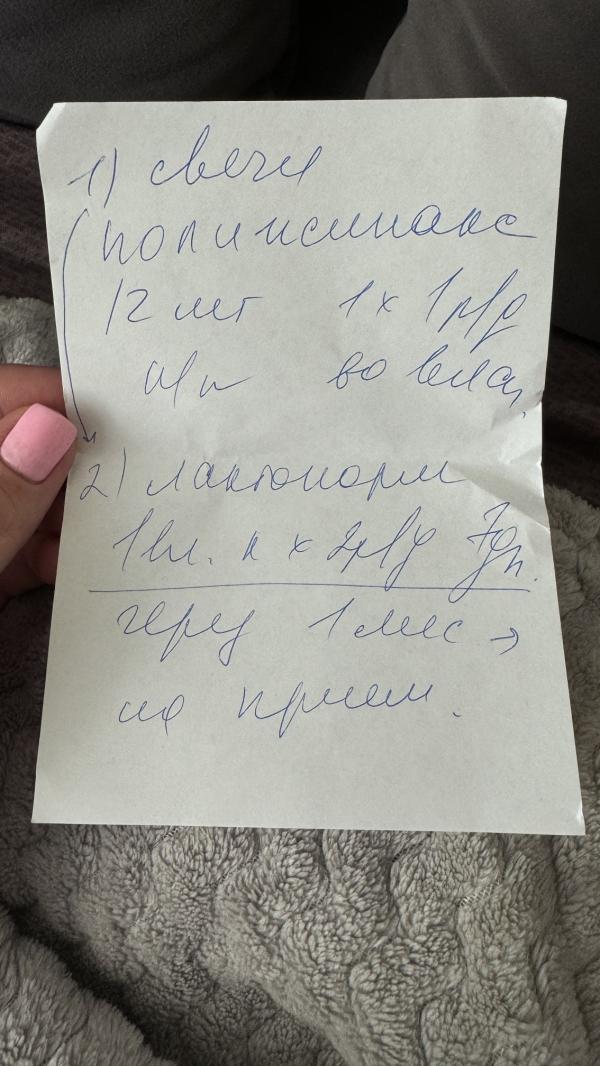 1) свечи
полижинакс
12 шт 1 х 1 р/д
н/н во влаг.
2) лактонорм
1 вл. к х 2 р/д 7 дн.
через 1 мес →
на прием.